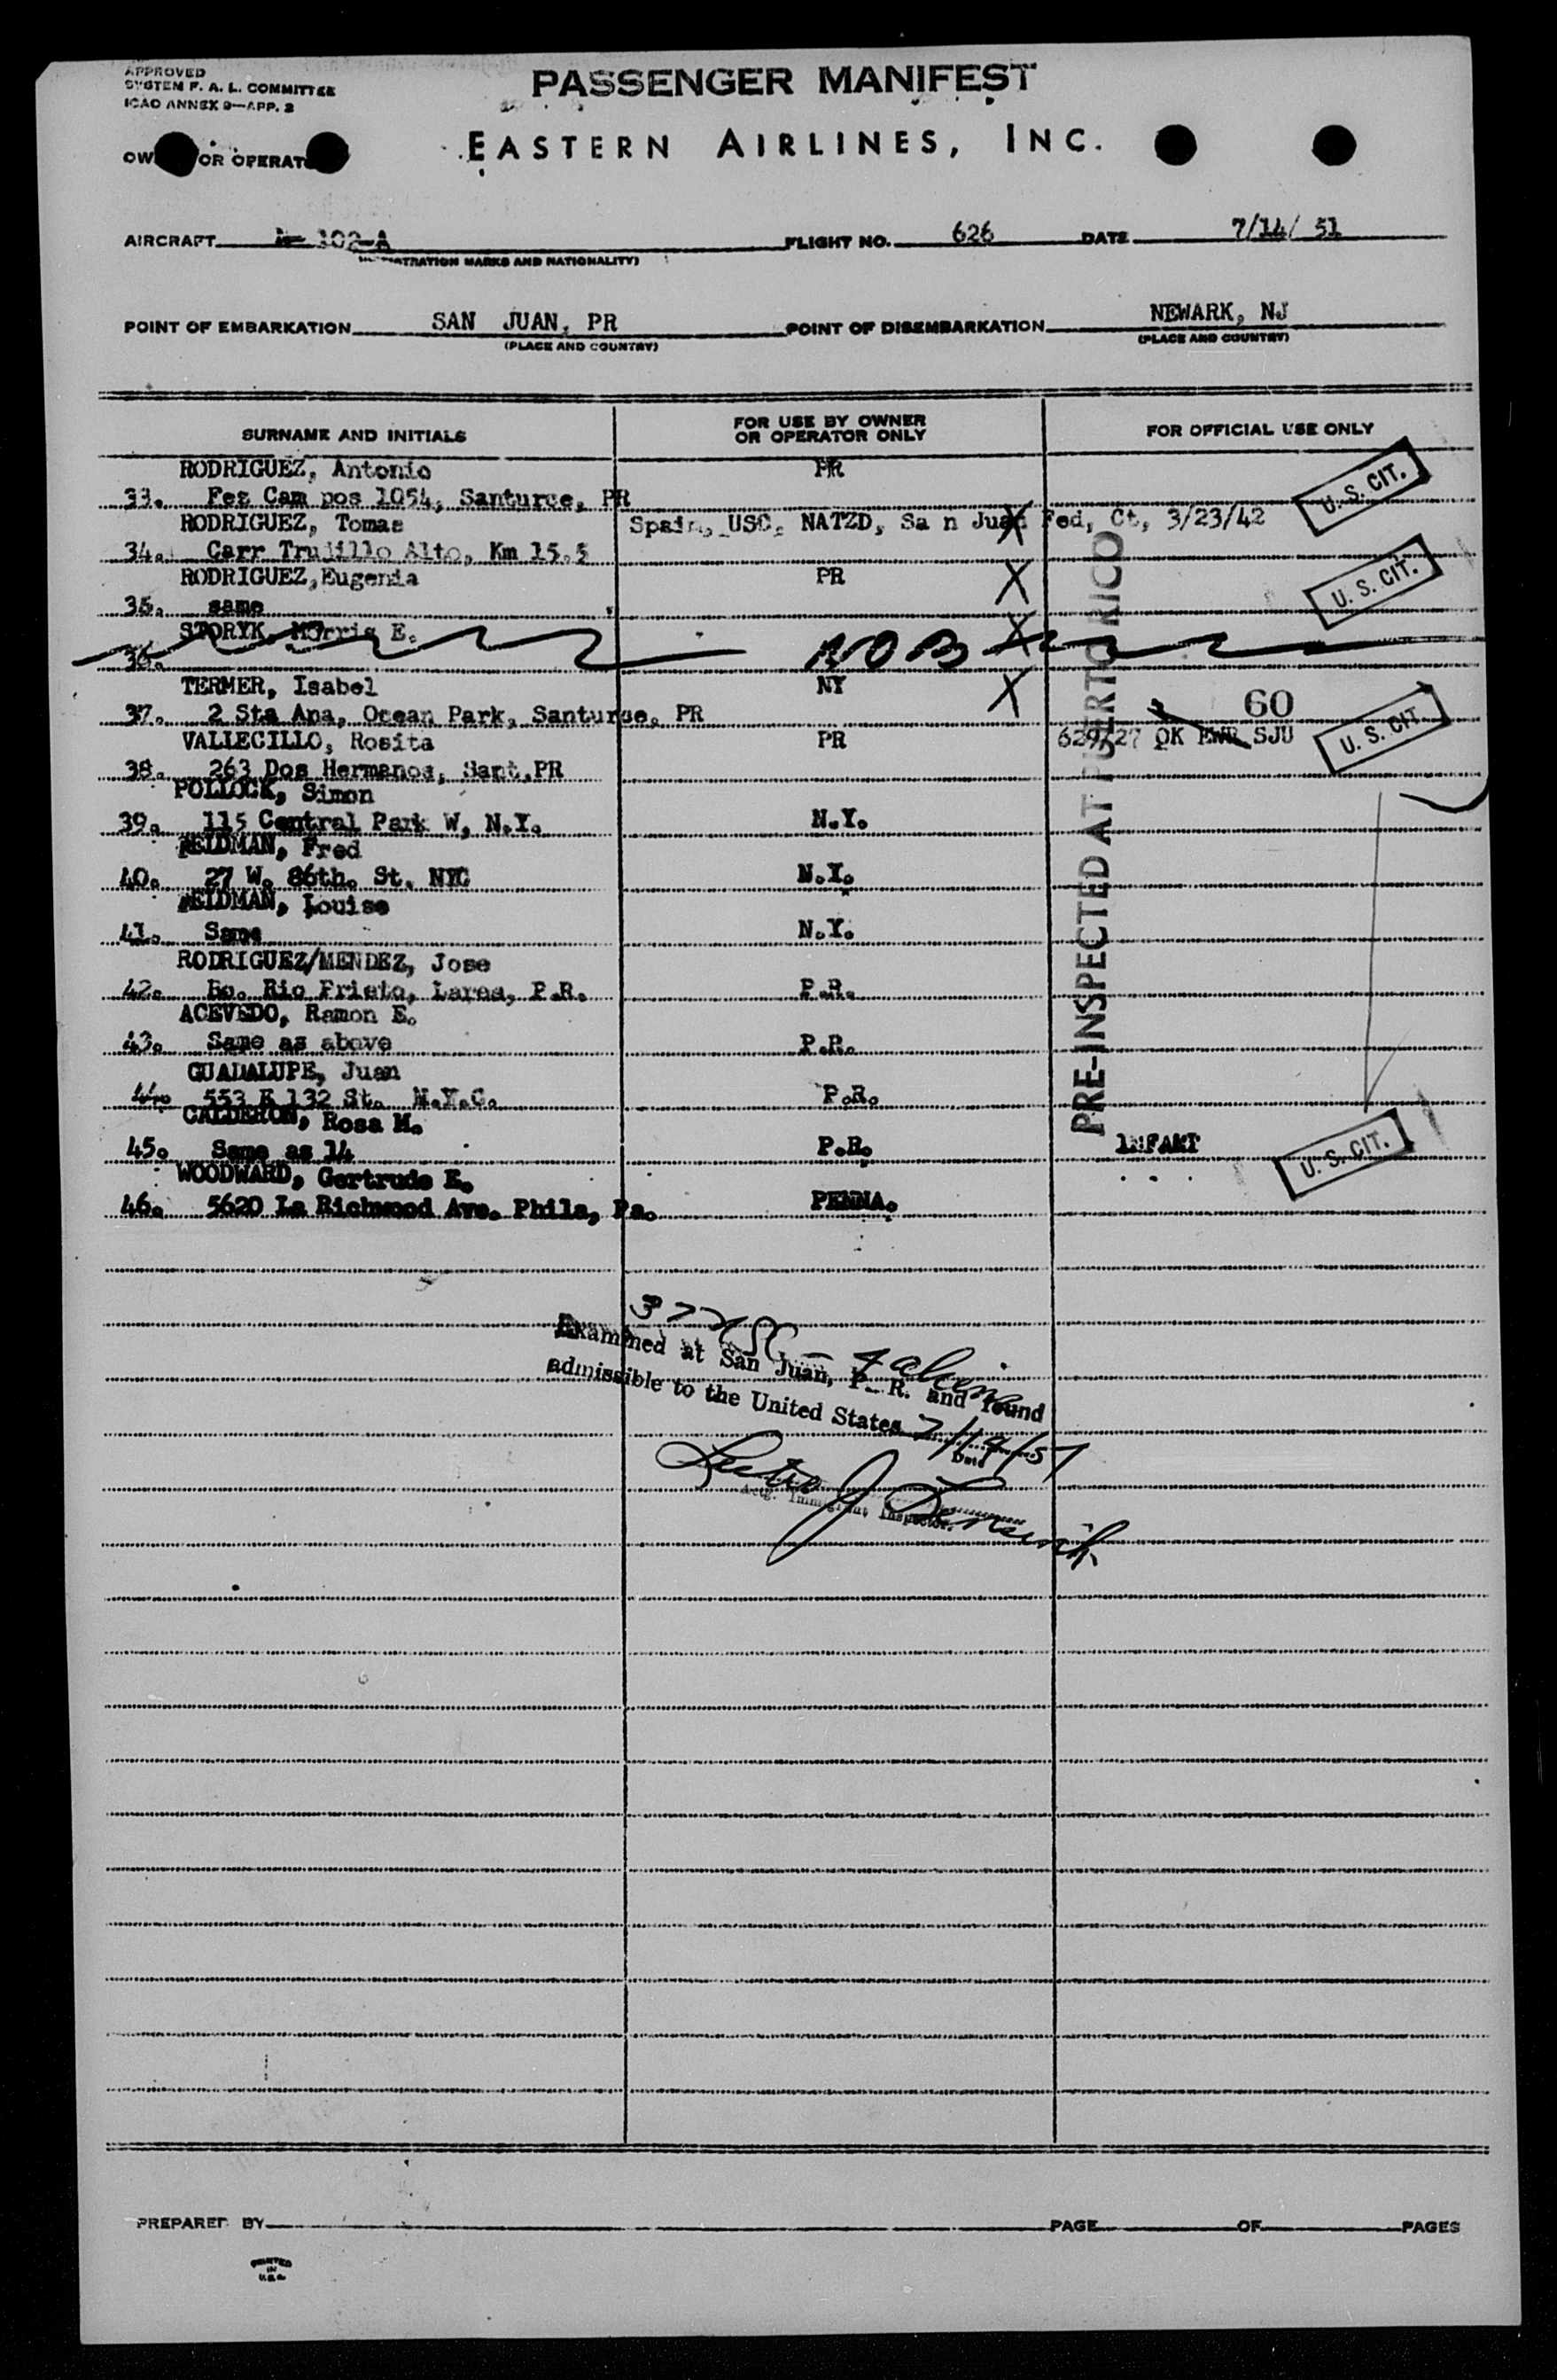 APPROVED
SYSTEM F. A. L. COMMITTEE
ICAO ANNEX 9—APP. 2
PASSENGER MANIFEST
OR OPERAT
EASTERN AIRLINES, INC.
AIRCRAFT N- 102-A FLIGHT NO. 626 DATE 7/14/ 51
MARKS AND NATIONALITY)
POINT OF EMBARKATION SAN JUAN, PR POINT OF DISEMBARKATION NEWARK, NJ
(PLACE AND COUNTRY) (PLACE AND COUNTRY)
SURNAME AND INITIALS FOR USE BY OWNER OR OPERATOR ONLY FOR OFFICIAL USE ONLY
RODRIGUEZ, Antonio PR
33. Fez Cam pos 1054, Santurce, PR U. S. CIT.
RODRIGUEZ, Tomas Spain, USC, NATZD, Sa n Juan Fed, Ct, 3/23/42
34. Carr Trujillo Alto, Km 15.5 X
RODRIGUEZ, Eugenia PR X U. S. CIT.
35. same
STORYK, Morris E. X
36. NOB
TERMER, Isabel NY X
37. 2 Sta Ana, Ocean Park, Santurce, PR 60
VALLECILLO, Rosita PR 629/27 OK EWR SJU U. S. CIT.
38. 263 Dos Hermanos, Sant, PR
POLLOCK, Simon
39. 115 Central Park W, N.Y. N.Y.
FELDMAN, Fred
40. 27 W. 86th. St. NYC N.Y.
FELDMAN, Louise
41. Same N.Y.
RODRIGUEZ/MENDEZ, Jose
42. Bo. Rio Prieto, Lares, P.R. P.R.
ACEVEDO, Ramon E.
43. Same as above P.R.
GUADALUPE, Juan
44. 553 E 132 St. N.Y.C. P.R.
CALDERON, Rosa M.
45. Same as 14 P.R. INFANT U. S. CIT.
WOODWARD, Gertrude E.
46. 5620 La Richwood Ave. Phila, Pa. PENNA.
PRE-INSPECTED AT PUERTO RICO
37 USC - 7 aliens
Examined at San Juan, P. R. and found
admissible to the United States 7/14/51
Date
Actg. Immigrant Inspector.
PREPARED BY PAGE OF PAGES
PRINTED
IN
U.S.A.